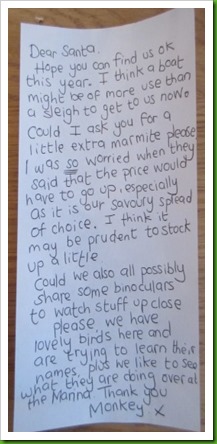 Dear Santa.
Hope you can find us ok
this year. I think a boat
might be of more use than
a sleigh to get to us now.
Could I ask you for a
little extra marmite please
I was so worried when they
said that the price would
have to go up, especially
as it is our savoury spread
of choice. I think it
may be prudent to stock
up a little
Could we also all possibly
share some binoculars
to watch stuff up close
please, we have
lovely birds here and
are trying to learn their
names, plus we like to see
what they are doing over at
the Manna. Thank you
Monkey x